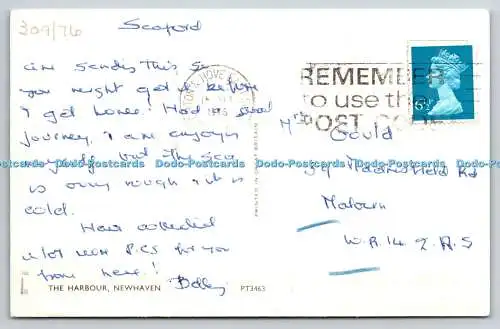 309/76
Seaford
am sending this so
you might get it before
I get home! Had a good
journey, & am enjoying
myself but the sea
is very rough & it is
cold.
Have collected
a lot more P.CS for you
from here! Betty
THE HARBOUR, NEWHAVEN PT3463
PRINTED IN GREAT BRITAIN
HOVE
REMEMBER
to use the
POST CODE
6½P
Mrs Gould
59 Madresfield Rd
Malvern
W.R.14 2.A.S
Postcards Postcards Postcards Postcards Postcards Postcards